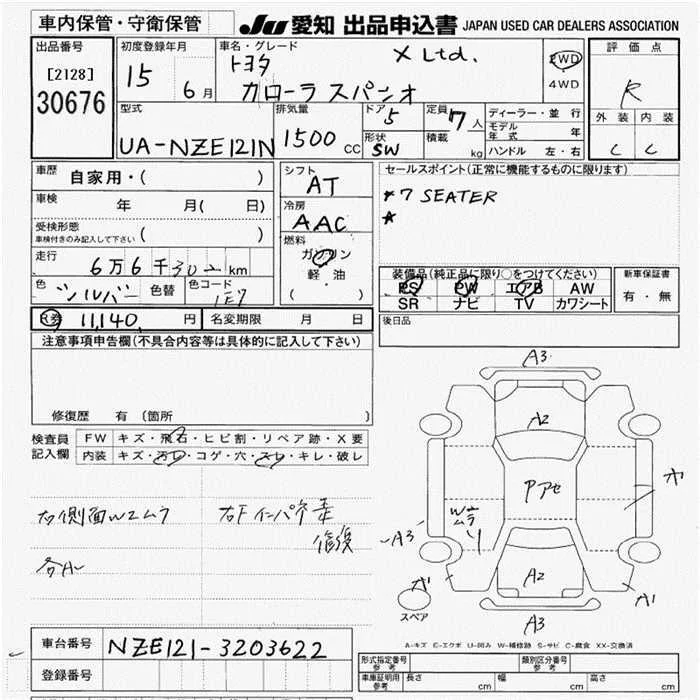 車内保管・守衛保管
JU 愛知 出品申込書 JAPAN USED CAR DEALERS ASSOCIATION
出品番号
[2128]
30676
初度登録年月
15 6月
車名・グレード
トヨタ X Ltd.
カローラ スパシオ
2WD
4WD
評価点
R
外装 内装
C C
型式
UA-NZE121N
排気量
1500 CC
ドア
5
形状
SW
定員
7人
積載
kg
ディーラー・並行
モデル年式 年
ハンドル 左・右
車歴
自家用・( )
車検
年 月( 日)
受検形態
車検付きのみ記入して下さい ( )
走行
6万6千302km
色
シルバー
色替
色コード
1E7
シフト
AT
冷房
AAC
燃料
ガソリン
軽油
( )
セールスポイント(正常に機能するものに限ります)
*7 SEATER
*
装備品(純正品に限り○をつけてください)
PS PW エアB AW
SR ナビ TV カワシート
新車保証書
有・無
R券 11,140 円
名変期限 月 日
後日品
注意事項申告欄(不具合内容等は具体的に記入して下さい)
修復歴 有(箇所 )
検査員
記入欄
FW キズ・飛石・ヒビ割・リペア跡・X要
内装 キズ・汚レ・コゲ・穴・スレ・キレ・破レ
右側面W2ムラ
右Fインパネ歪
修復
各A
A3
A2
Pアセ
W2
ムラ
A3
A2
A3
スペア
A-キズ E-エクボ U-凹み W-補修跡 S-サビ C-腐食 XX-交換済
車台番号
NZE121-3203622
登録番号
形式指定番号
参考
類別区分番号
参考
車庫証明用
参考
長さ cm 幅 cm 高さ cm